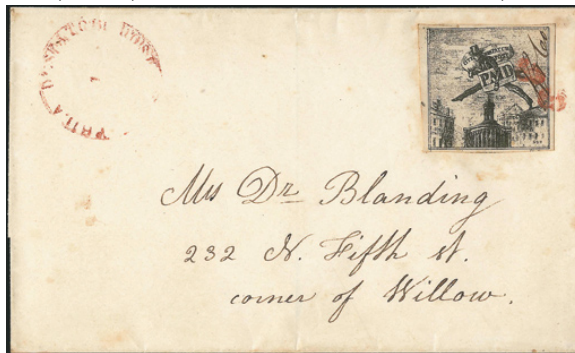 PHILA DESPATCH POST
PAID
Mrs Dr Blanding
232 N. Fifth st.
corner of Willow.